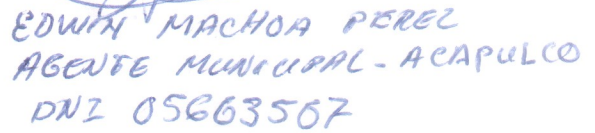 EDWIN MACHOA PEREZ
AGENTE MUNICIPAL - ACAPULCO
DNI 05663567